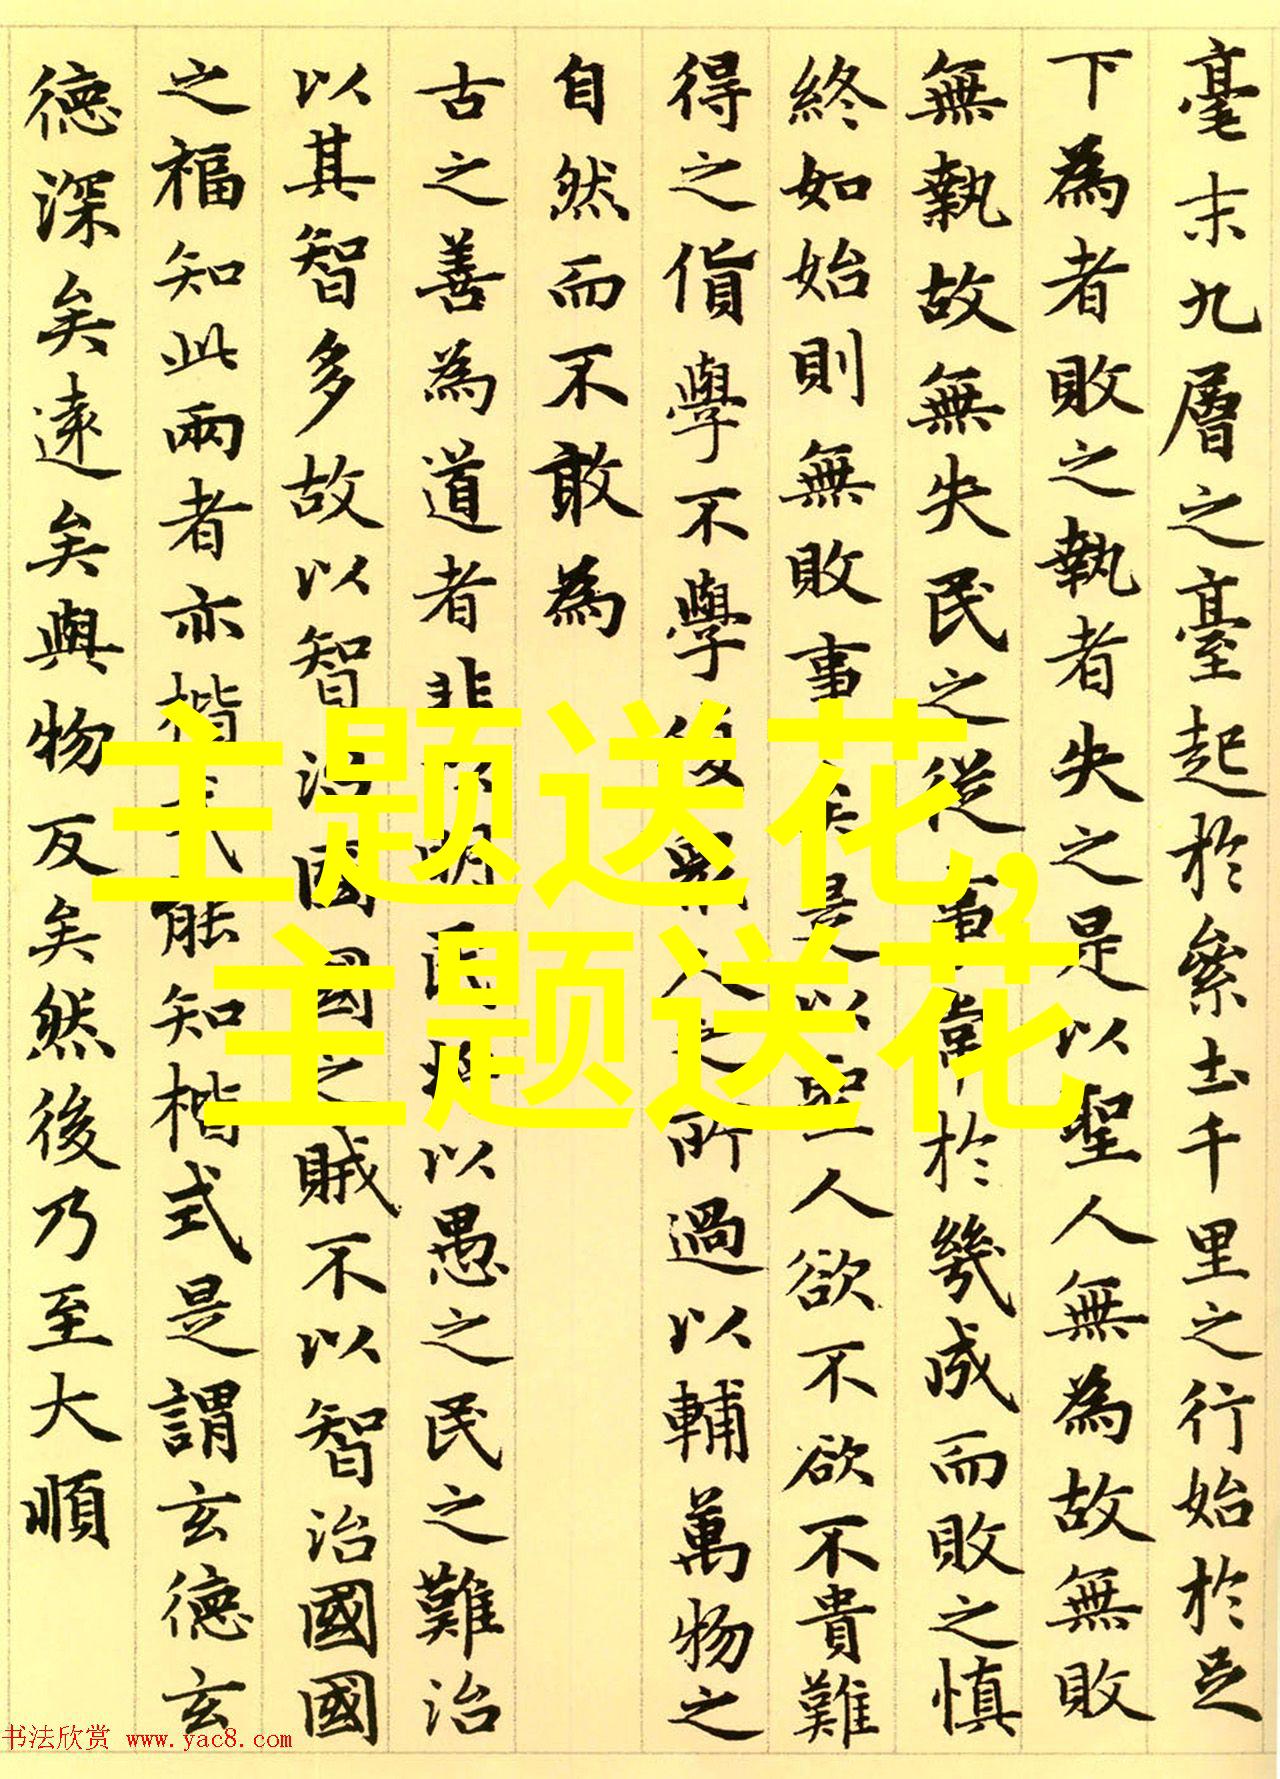 毫末九層之臺起於絫土千里之行始於足
下為者敗之執者失之是以聖人無為故無敗
無執故無失民之從事常於幾成而敗之慎
終如始則無敗事矣是以聖人欲不欲不貴難
得之貨學不學復衆人之所過以輔萬物之
自然而不敢為
古之善為道者非以明民將以愚之民之難治
以其智多故以智治國國之賊不以智治國國
之福知此兩者亦楷式能知楷式是謂玄德玄
德深矣遠矣與物反矣然後乃至大順
主题送花,
主题送花
书法欣赏 www.yac8.com